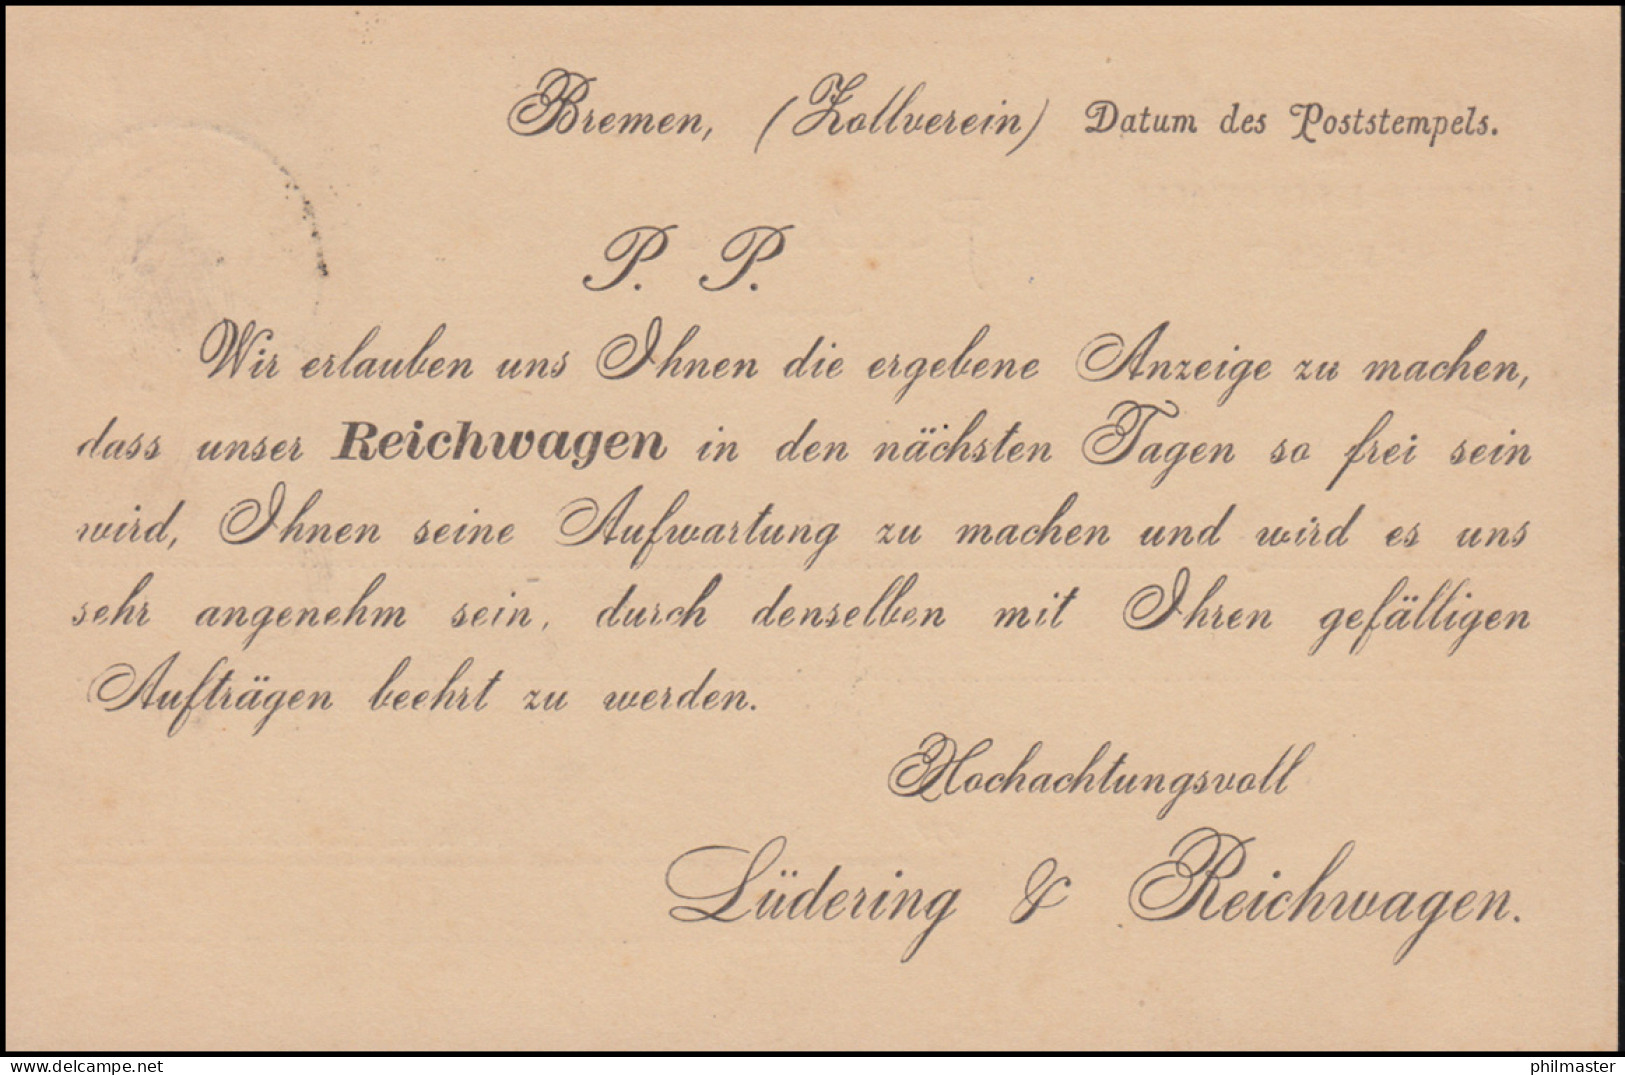 Bremen, (Zollverein) Datum des Poststempels.
P. P.
Wir erlauben uns Ihnen die ergebene Anzeige zu machen,
dass unser Reichwagen in den nächsten Tagen so frei sein
wird, Ihnen seine Aufwartung zu machen und wird es uns
sehr angenehm sein, durch denselben mit Ihren gefälligen
Aufträgen beehrt zu werden.
Hochachtungsvoll
Lüdering & Reichwagen.
www.delcampe.net
philmaster